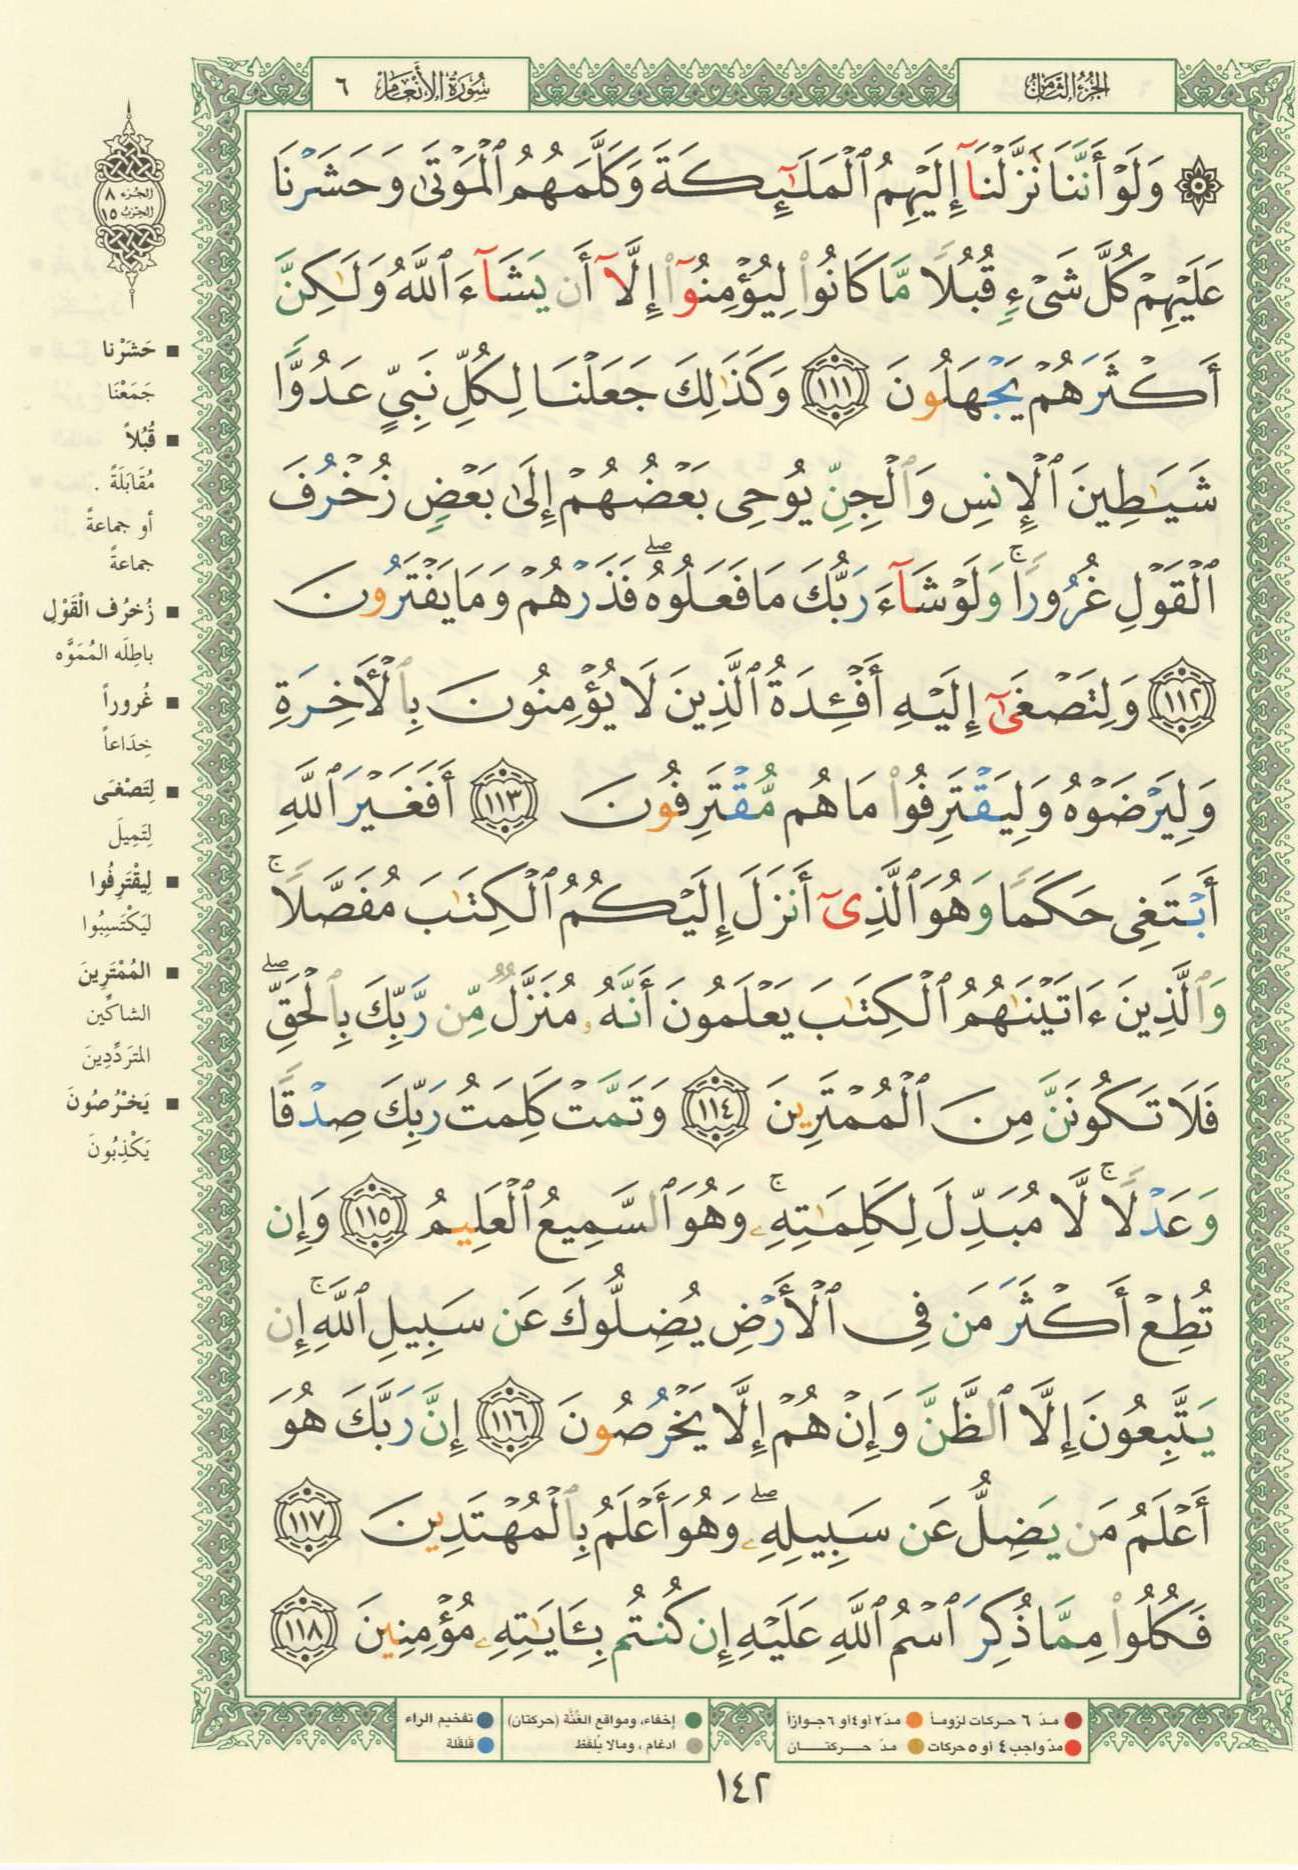 الجزء الثامن
سورة الأنعام ٦
۞ وَلَوْ أَنَّنَا نَزَّلْنَآ إِلَيْهِمُ ٱلْمَلَٰٓئِكَةَ وَكَلَّمَهُمُ ٱلْمَوْتَىٰ وَحَشَرْنَا
عَلَيْهِمْ كُلَّ شَىْءٍ قُبُلًا مَّا كَانُوا۟ لِيُؤْمِنُوٓا۟ إِلَّآ أَن يَشَآءَ ٱللَّهُ وَلَٰكِنَّ
أَكْثَرَهُمْ يَجْهَلُونَ ١١١ وَكَذَٰلِكَ جَعَلْنَا لِكُلِّ نَبِىٍّ عَدُوًّا
شَيَٰطِينَ ٱلْإِنسِ وَٱلْجِنِّ يُوحِى بَعْضُهُمْ إِلَىٰ بَعْضٍ زُخْرُفَ
ٱلْقَوْلِ غُرُورًا ۚ وَلَوْ شَآءَ رَبُّكَ مَا فَعَلُوهُ ۖ فَذَرْهُمْ وَمَا يَفْتَرُونَ
١١٢ وَلِتَصْغَىٰٓ إِلَيْهِ أَفْـِٔدَةُ ٱلَّذِينَ لَا يُؤْمِنُونَ بِٱلْأَخِرَةِ
وَلِيَرْضَوْهُ وَلِيَقْتَرِفُوا۟ مَا هُم مُّقْتَرِفُونَ ١١٣ أَفَغَيْرَ ٱللَّهِ
أَبْتَغِى حَكَمًا وَهُوَ ٱلَّذِىٓ أَنزَلَ إِلَيْكُمُ ٱلْكِتَٰبَ مُفَصَّلًا ۚ
وَٱلَّذِينَ ءَاتَيْنَٰهُمُ ٱلْكِتَٰبَ يَعْلَمُونَ أَنَّهُۥ مُنَزَّلٌ مِّن رَّبِّكَ بِٱلْحَقِّ ۖ
فَلَا تَكُونَنَّ مِنَ ٱلْمُمْتَرِينَ ١١٤ وَتَمَّتْ كَلِمَتُ رَبِّكَ صِدْقًا
وَعَدْلًا ۚ لَّا مُبَدِّلَ لِكَلِمَٰتِهِۦ ۚ وَهُوَ ٱلسَّمِيعُ ٱلْعَلِيمُ ١١٥ وَإِن
تُطِعْ أَكْثَرَ مَن فِى ٱلْأَرْضِ يُضِلُّوكَ عَن سَبِيلِ ٱللَّهِ ۚ إِن
يَتَّبِعُونَ إِلَّا ٱلظَّنَّ وَإِنْ هُمْ إِلَّا يَخْرُصُونَ ١١٦ إِنَّ رَبَّكَ هُوَ
أَعْلَمُ مَن يَضِلُّ عَن سَبِيلِهِۦ ۖ وَهُوَ أَعْلَمُ بِٱلْمُهْتَدِينَ ١١٧
فَكُلُوا۟ مِمَّا ذُكِرَ ٱسْمُ ٱللَّهِ عَلَيْهِ إِن كُنتُم بِـَٔايَٰتِهِۦ مُؤْمِنِينَ ١١٨
الجزء ٨
الحزب ١٥
■ حَشَرْنا
جَمَعْنَا
■ قُبُلاً
مُقَابَلَةً .
أو جماعةً
جماعةً
■ زُخرُف الْقَوْلِ
باطِلَه المُمَوَّه
■ غُروراً
خِدَاعاً
■ لِتَصْغَى
لِتَمِيلَ
■ لِيقْتَرِفُوا
لِيَكْتَسِبُوا
■ المُمْتَرِينَ
الشاكِّين
المتَردِّدِينَ
■ يَخْرُصُونَ
يَكْذِبُونَ
مدّ ٦ حركات لزوماً
مدّ ٢ أو ٤ أو ٦ جوازاً
مدّ واجب ٤ أو ٥ حركات
مدّ حركتان
إخفاء، ومواقع الغُنَّة (حركتان)
ادغام، ومالا يُلفظ
تفخيم الراء
قلقلة
١٤٢